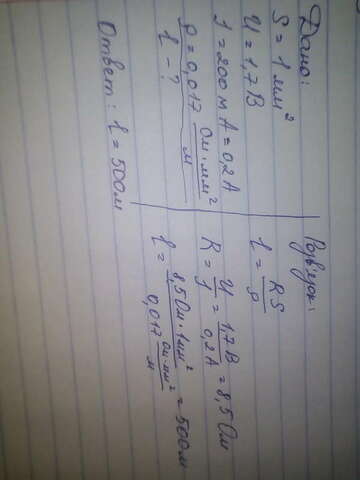 Дано:
S = 1 мм²
U = 1,7 В
I = 200 мА = 0,2 А
ρ = 0,017 Ом·мм²/м
l - ?
Розв'язок:
l = RS/ρ
R = U/I = 1,7 В/0,2 А = 8,5 Ом
l = 8,5 Ом·1мм²/0,017 Ом·мм²/м = 500 м
Ответ: l = 500 м